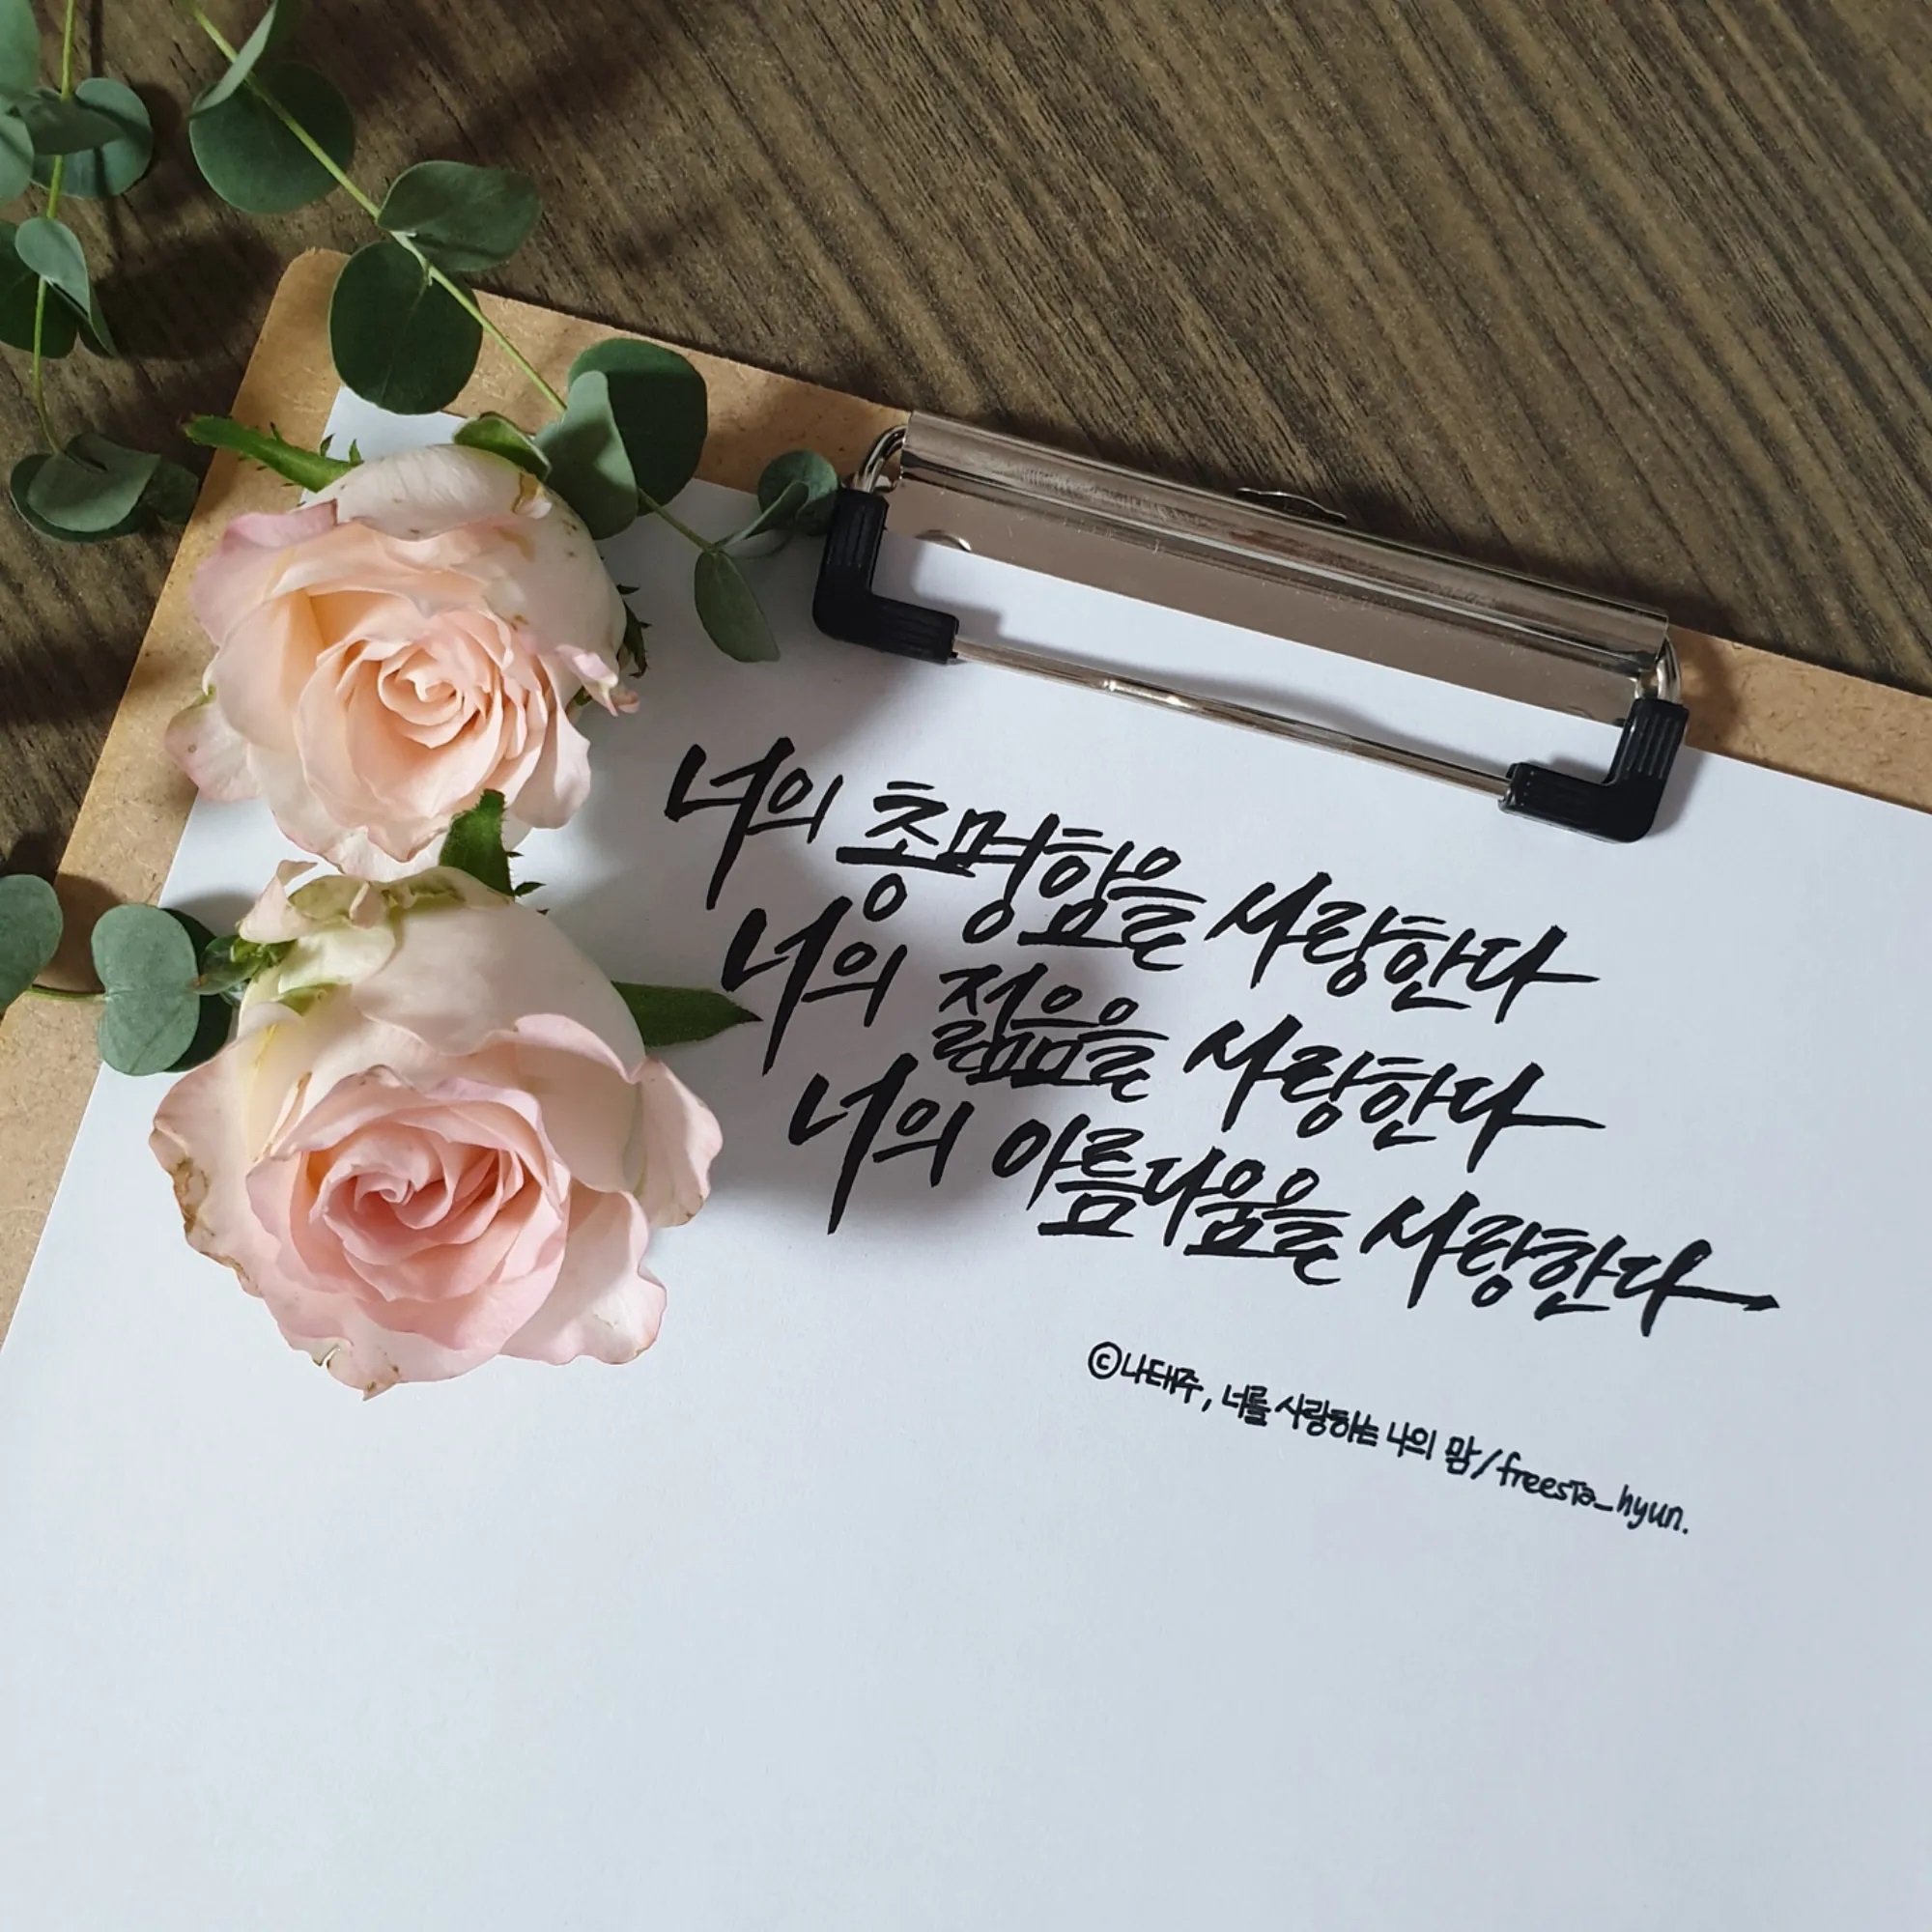 너의 총명함을 사랑한다
너의 젊음을 사랑한다
너의 아름다움을 사랑한다
©나태주, 너를 사랑하는 나의 맘/freesta_hyun.